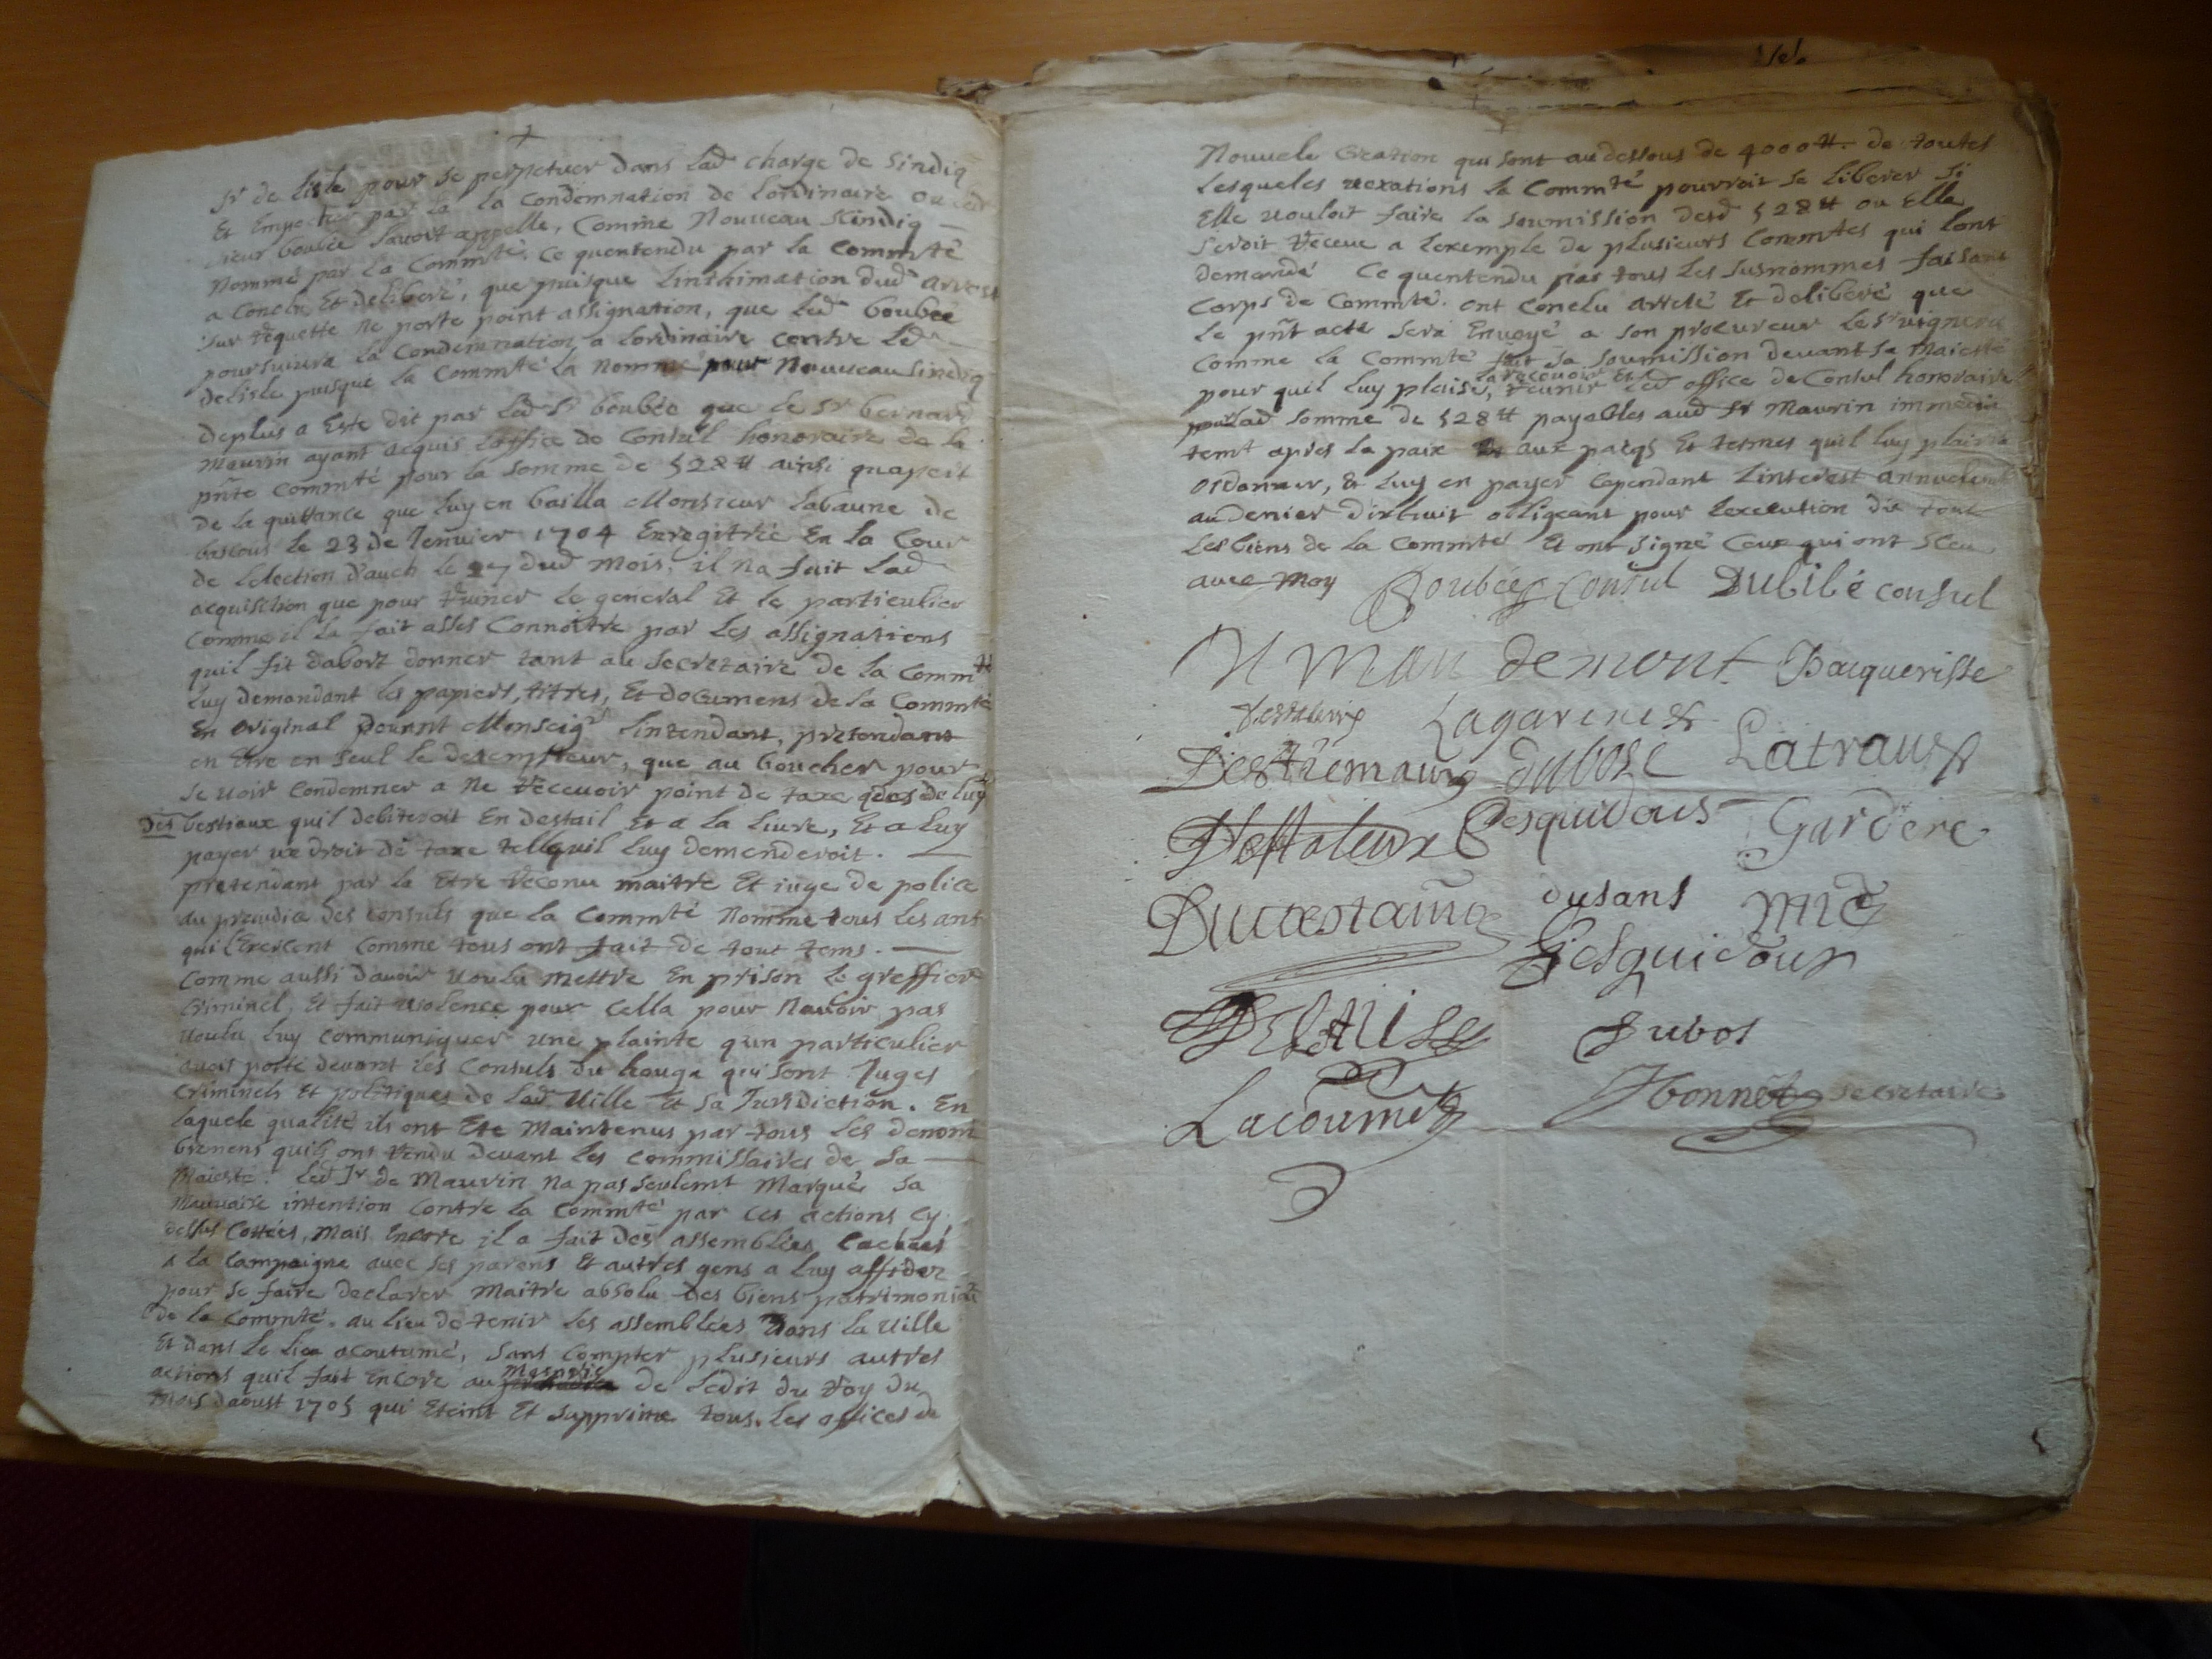 sr de lisle pour se perpetuer dans lad charge de sindiq
Et Empecher par la la Condemnation de lordinaire ou led
sieur boubée lavoit appelle, Comme Nouveau scindiq
Nommé par la Commté. Ce quentendu par la Commté
a Conclu Et deliberé, que puisque linthimation dud arrest
sur requette ne porte point assignation, que led boubée
poursuivra la Condemnation a lordinaire contre led
delisle puisque la Commté la nommé pour Nouveau sindiq
deplus a Este dit par led sr boubée que le sr bernard
Maurin ayant acquis loffice de Consul honoraire de la
pnte Commté pour la somme de 528 # ainsi quapert
de la quittance que luy en bailla Monsieur labaune de
bascous le 23 de Jenvier 1704 Enregitrée En la Cour
de lelection d'auch le 27 dud mois, il na fait lad
acquisition que pour ruiner le general Et le particulier
Comme il la fait asses Connoitre par les assignations
quil fit dabort donner tant au secretaire de la Commté
luy demandant les papiers, titres, Et documens de la Commté
En original devant Monseigr lintendant, pretendant
en Etre en seul le detempteur, que au boucher pour
se voir Condemner a Ne recevoir point de taxe que de luy
des bestiaux quil debiteroit En destail Et a la livre, Et a luy
payer un droit de taxe tel quil luy demenderoit.
pretendant par la Etre reconu maitre Et iuge de police
au preiudice des consuls que la Commté Nomme tous les ans
qui lExercent comme tous ont fait de tout tems.
Comme aussi davoir voulu mettre En prison le greffier
Criminel, Et fait violence pour cella pour Navoir pas
voulu luy communiquer une plainte qun particulier
avoit porté devant les Consuls du houga qui sont Juges
Criminels Et politiques de lad Ville Et sa Jurisdiction. En
laquele qualité ils ont Ete Maintenus par tous les denom
bremens quils ont rendu devant les commissaires de sa
Maieste. led sr de Maurin na pas seulemt Marqué sa
Mauvaise intention Contre la Commté par ces actions Cy
dessus Cottées, Mais Encore il a fait des assemblées Cachées
a la Campaigne avec ses parens Et autres gens a luy affidez
pour se faire declarer Maitre absolu des biens patrimoniaux
de la Commté. au lieu de tenir les assemblées dans la Ville
Et dans le lieu acoutumé, sans compter plusieurs autres
actions quil fait Encore au Mespris de ledit du roy du
mois daoust 1705 qui Eteint Et supprime tous les offices de
Nouvele Creation qui sont audessous de 4000 #. de toutes
lesqueles vexations la Commté pourroit se liberer si
Elle vouloit faire la soumission desd 528 # ou Elle
seroit receue a lexemple de plusieurs Commtes qui lont
demandé Ce quentendu par tous les susnommes faisant
Corps de Commté. ont Conclu arreté Et deliberé que
le pnt acte sera Envoyé a son procureur le sr vignere
Comme la Commté fait sa soumission devant sa Maiesté
pour quil luy plaise, la recevoir Et reunir led office de Consul honoraire
pour lad somme de 528 # payables aud sr Maurin immedia
temt apres la paix Et aux pacqs Et termes quil luy plaira
ordonner, & luy en payer cependant linterest annuelemt
au denier dixhuit obligeant pour lexecution du tout
les biens de la Commté Et ont signé Ceux qui ont sceu
avec moy Boubée Consul Dubilé consul
Demont Bacquerisse
Lagarrere
Destremau dubosc Latrau
Destaleux Pesquidous Gardere
Ducastaing dusans
Pesquidoux
Dubos
Lacoume Ybonnet secretaire